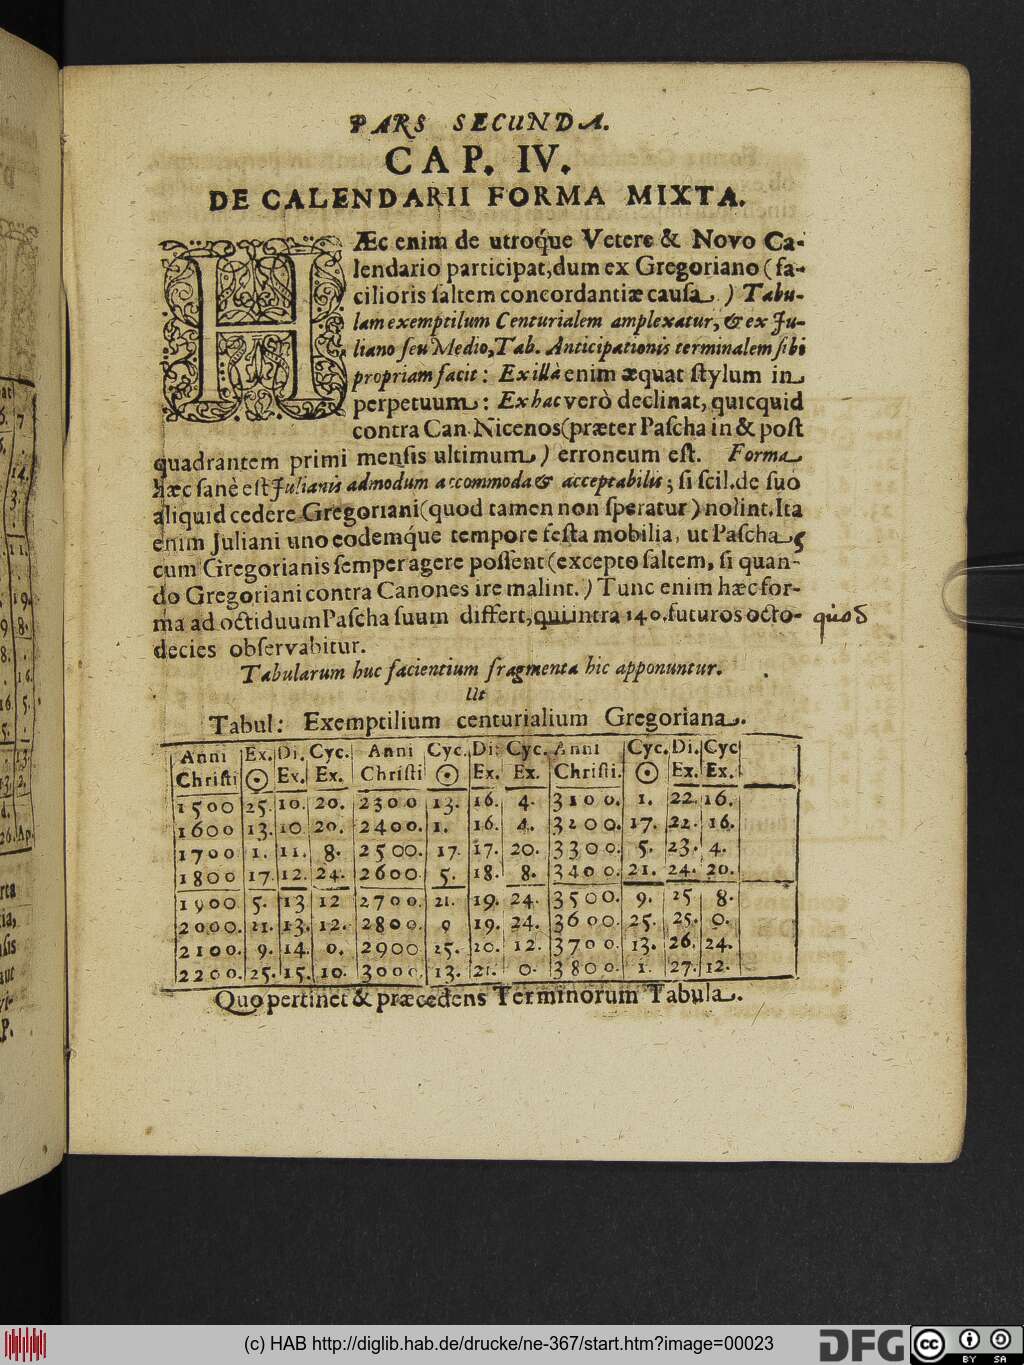 PARS SECUNDA.
CAP. IV.
DE CALENDARII FORMA MIXTA.
HÆc enim de utroq́ue Vetere & Novo Ca-
lendario participat, dum ex Gregoriano (fa-
cilioris ſaltem concordantiæ cauſa) Tabu-
lam exemptilum Centurialem amplexatur, & ex Ju-
liano ſeu Medio, Tab. Anticipationis terminalem ſibi
propriam facit: Ex illâ enim æquat ſtylum in
perpetuum: Ex hac verò declinat, quicquid
contra Can. Nicenos (præter Paſcha in & poſt
quadrantem primi menſis ultimum) erroneum eſt. Forma
hæc ſanè eſt Julianis admodum accommoda & acceptabilis; ſi ſcil. de ſuo
aliquid cedere Gregoriani (quod tamen non ſperatur) nolint. Ita
enim Juliani uno eodemq́ue tempore feſta mobilia, ut Paſcha
cum Gregorianis ſemper agere poſſent (excepto ſaltem, ſi quan-
do Gregoriani contra Canones ire malint.) Tunc enim hæc for-
ma ad octiduum Paſcha ſuum differt, qui intra 140. futuros octo- quod
decies obſervabitur.
Tabularum huc facientium fragmenta hic apponuntur.
Ut
Tabul: Exemptilium centurialium Gregoriana.
Anni Ex. Di. Cyc. Anni Cyc. Di: Cyc. Anni Cyc. Di. Cyc
Chriſti ☉ Ex. Ex. Chriſti ☉ Ex. Ex. Chriſti. ☉ Ex. Ex.
1500 25. 10. 20. 2300 13. 16. 4. 3100. 1. 22. 16.
1600 13. 10 20. 2400. 1. 16. 4. 3200. 17. 22. 16.
1700 1. 11. 8. 2500. 17. 17. 20. 3300. 5. 23. 4.
1800 17. 12. 24. 2600 5. 18. 8. 3400. 21. 24. 20.
1900 5. 13 12 2700. 21. 19. 24. 3500. 9. 25 8.
2000. 21. 13. 12. 2800. 9 19. 24. 3600. 25. 25. 0.
2100. 9. 14. 0. 2900 25. 20. 12. 3700. 13. 26. 24.
2200. 25. 15. 10. 3000. 13. 21. 0. 3800. 1. 27. 12.
Quo pertinet & præcedens Terminorum Tabula.
(c) HAB http://diglib.hab.de/drucke/ne-367/start.htm?image=00023
DFG
cc BY SA